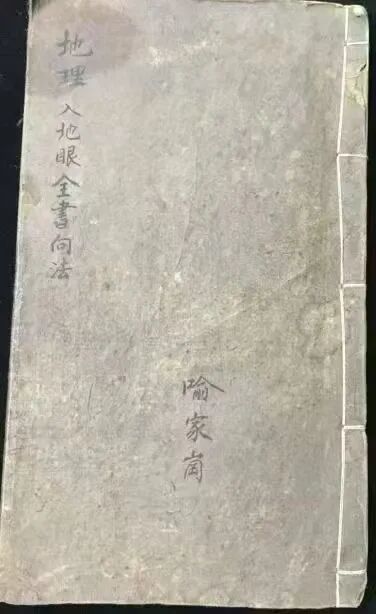 地理入地眼全書向法
喻家崗